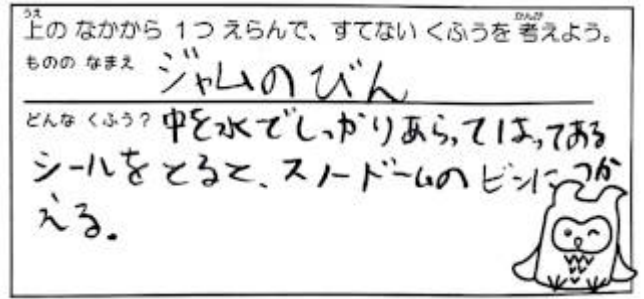 上の なかから 1つ えらんで、すてない くふうを 考えよう。
ものの なまえ ジャムのびん
どんな くふう? 中を水でしっかりあらってはってある
シールをとると、スノードームのビンにつか
える。